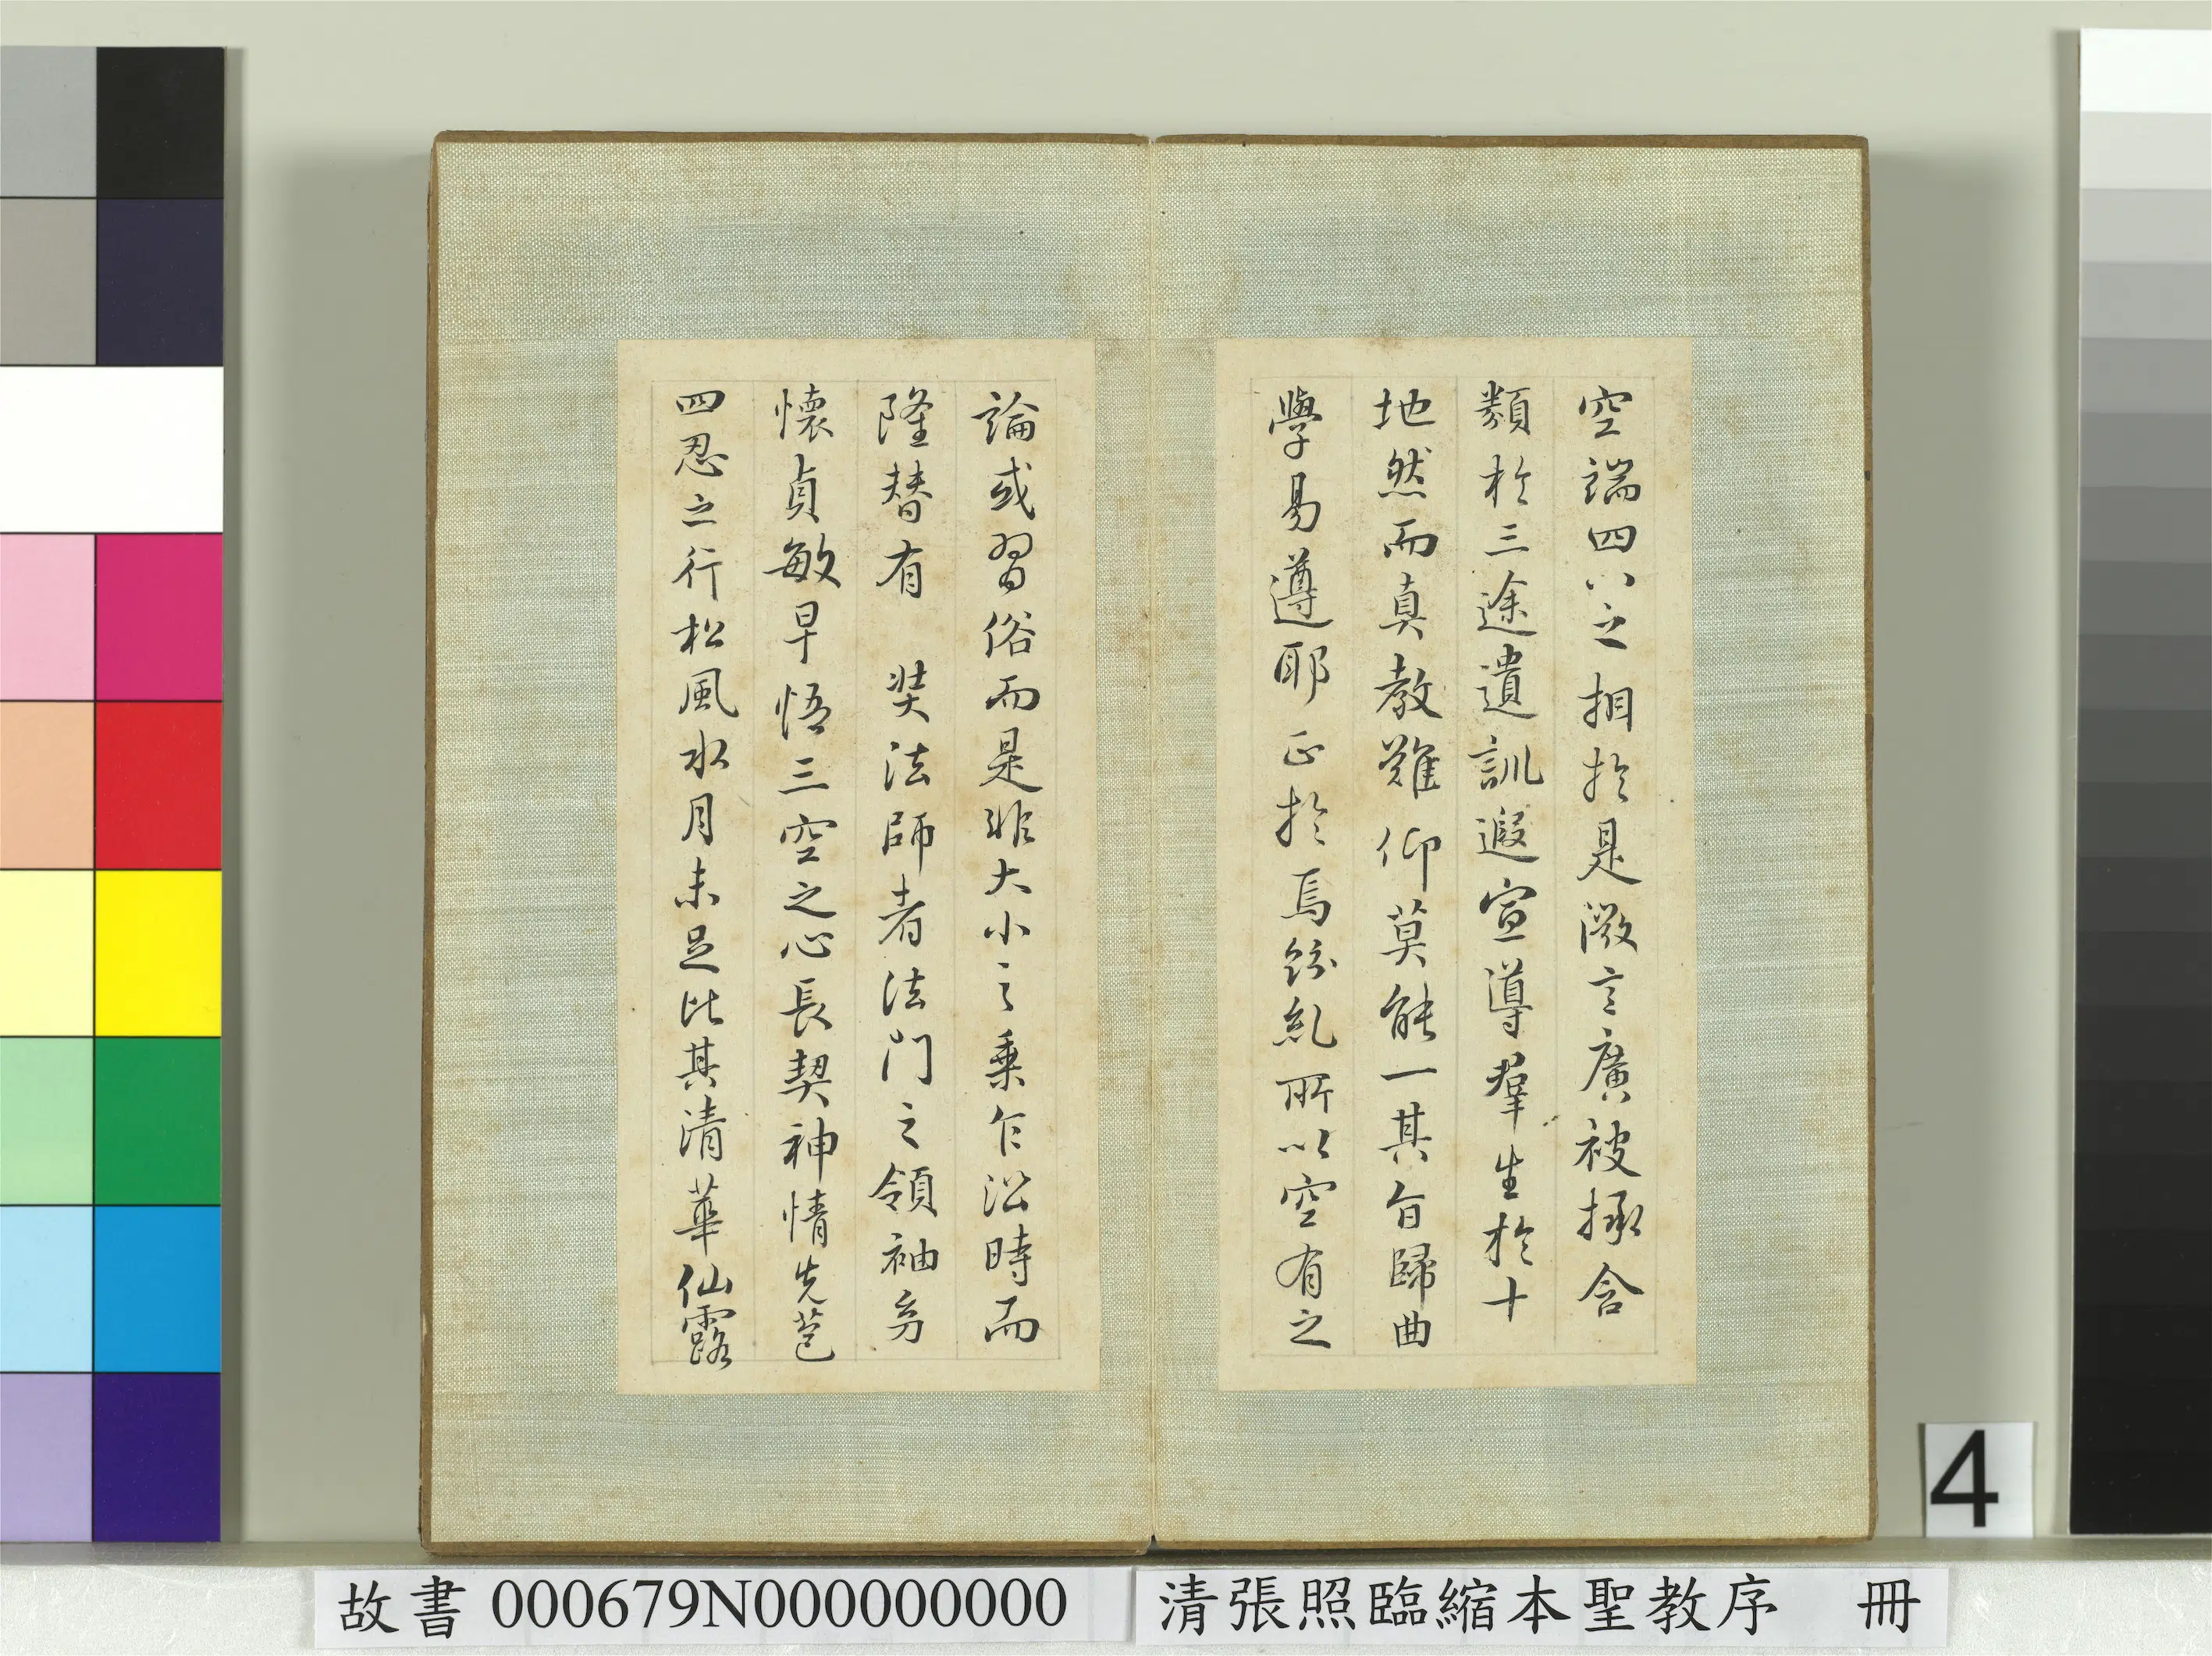 空端四八之相於是微言廣被拯含
類於三途遺訓遐宣導羣生於十
地然而真教難仰莫能一其旨歸曲
學易遵耶正於焉紛糺所以空有之
論或習俗而是非大小之乘乍沿時而
隆替有 奘法師者法門之領袖矣
懷貞敏早悟三空之心長契神情先苞
四忍之行松風水月未足比其清華仙露
4
故書 000679N000000000 清張照臨縮本聖教序 冊